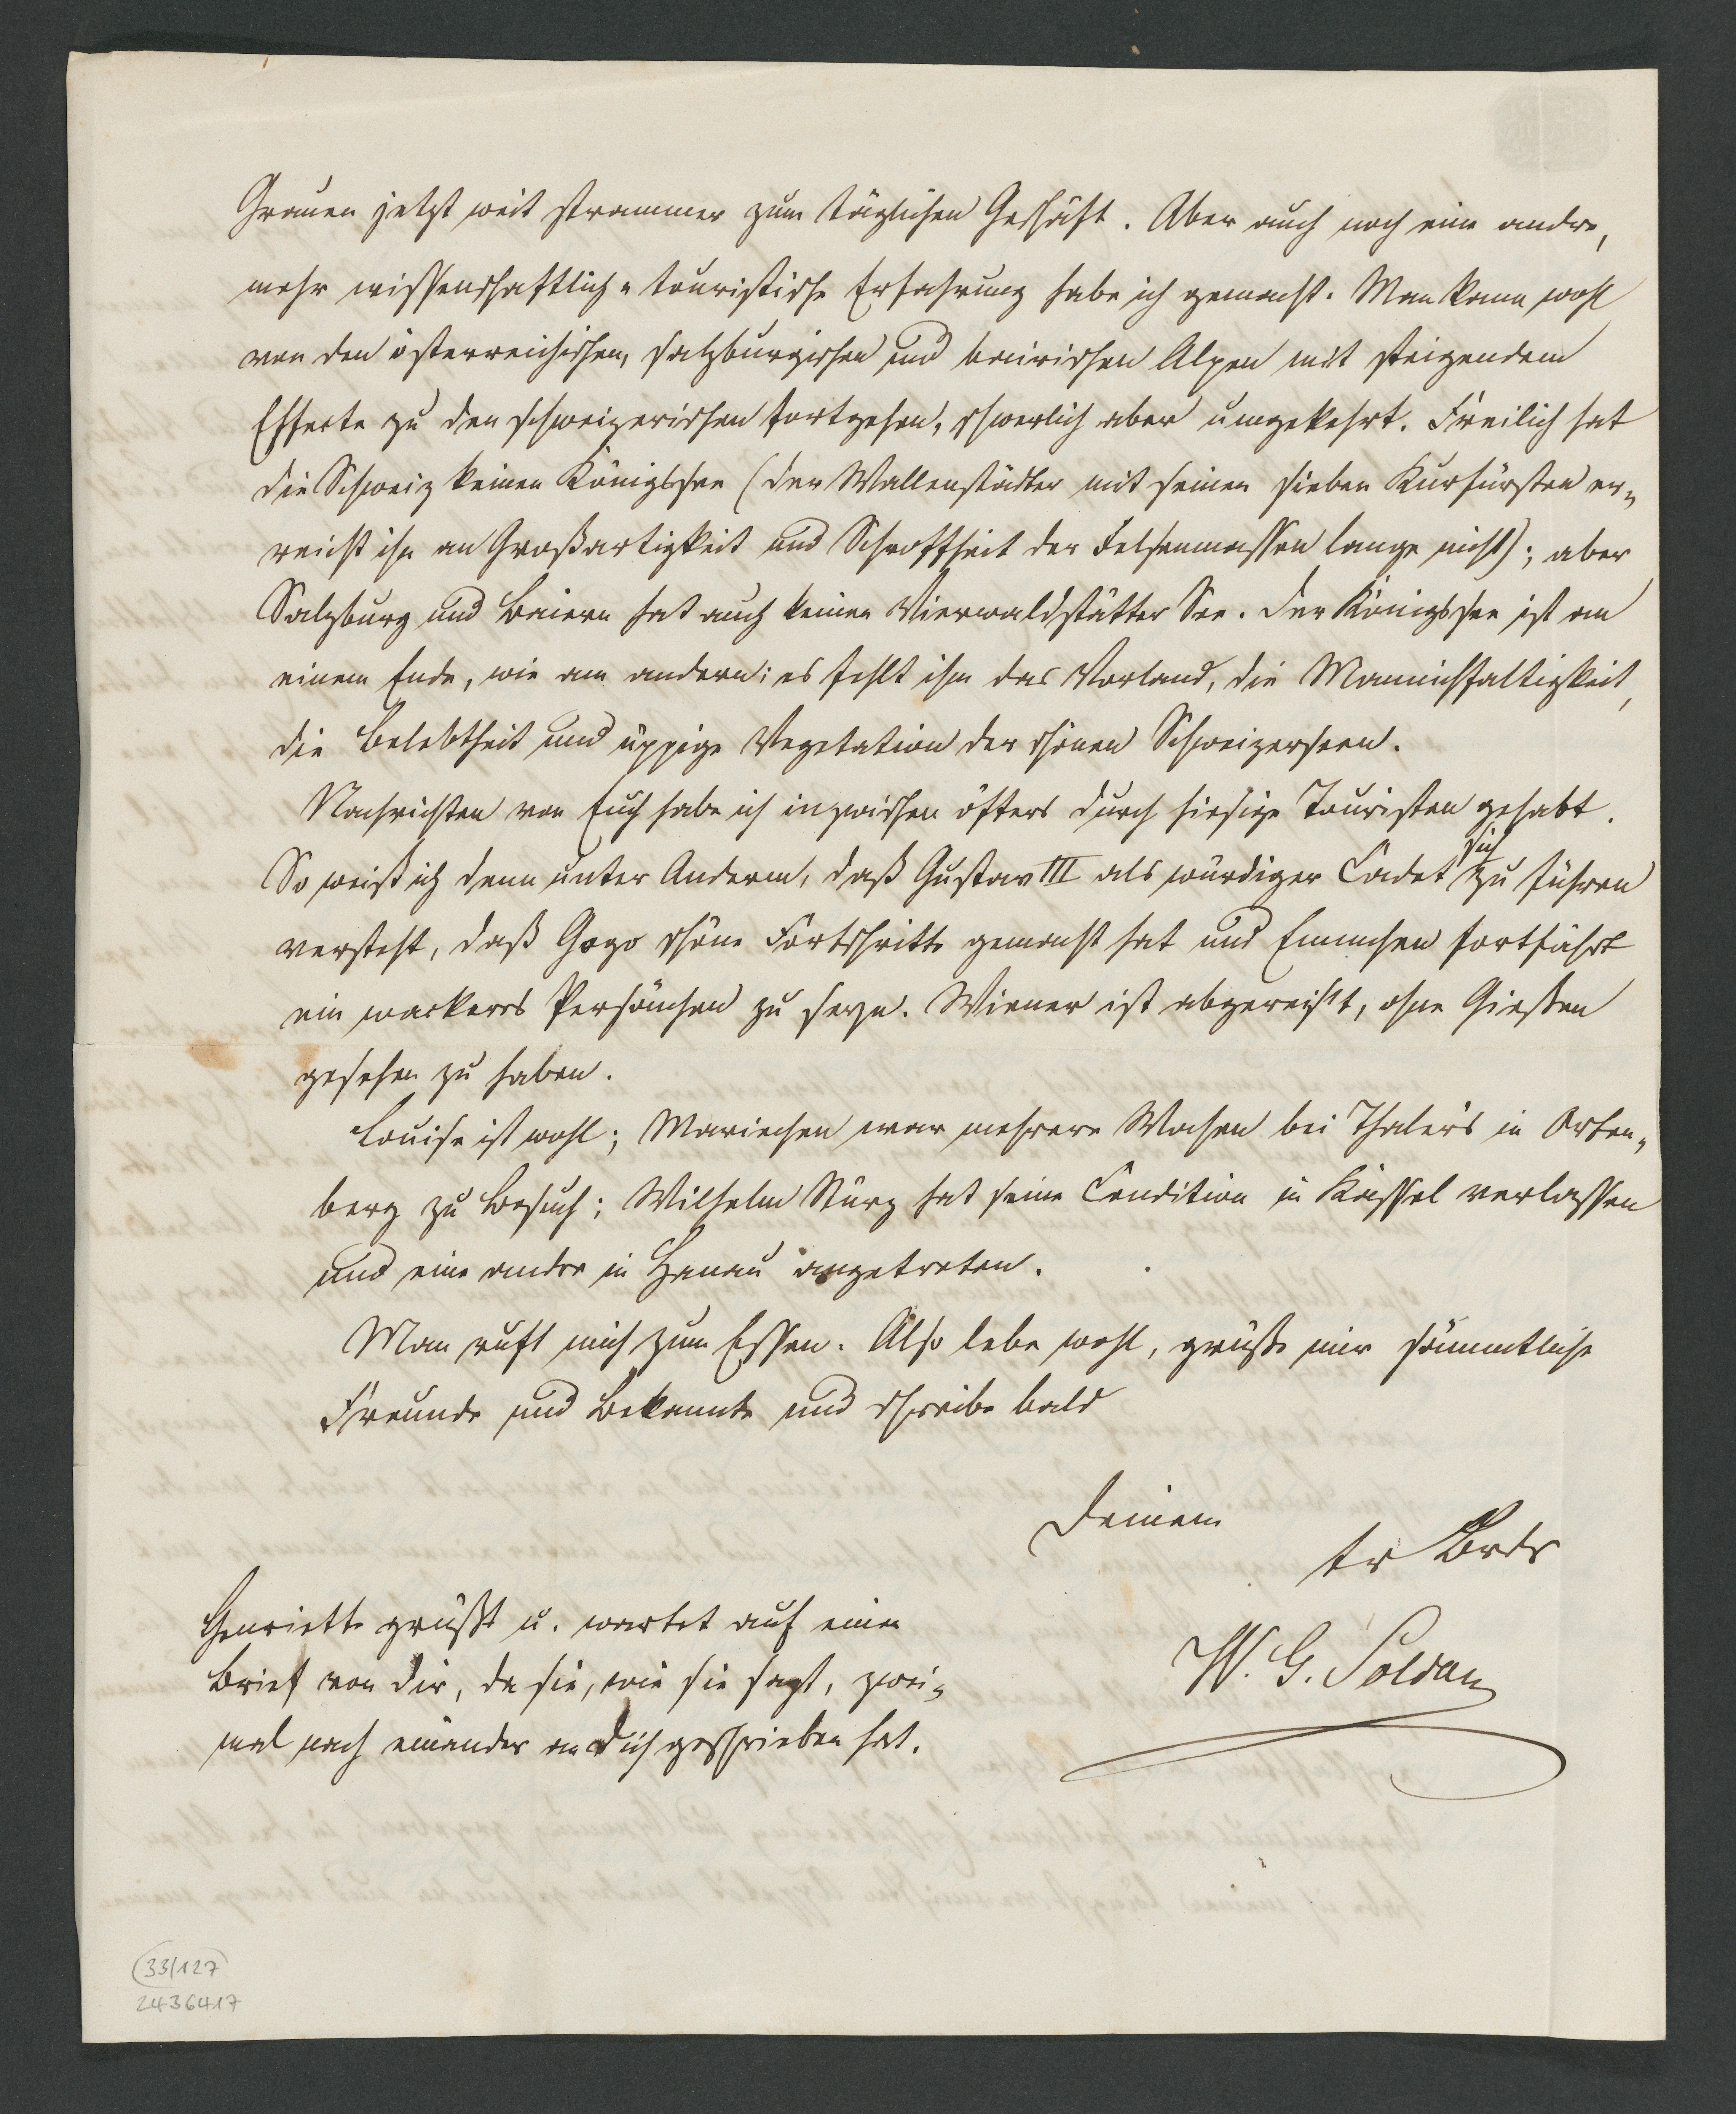 Grauen jetzt weit strammer zum täglichen Geschäft. Aber auch noch eine andre,
mehr wissenschaftlich-touristische Erfahrung habe ich gemacht. Man kann wohl
von den österreichischen, salzburgischen und bairischen Alpen mit steigendem
Effecte zu den schweizerischen fortgehen, schwerlich aber umgekehrt. Freilich hat
die Schweiz keinen Königssee (der Wallenstädter mit seinen sieben Kurfürsten er-
reicht ihn an Großartigkeit und Schroffheit der Felsenmassen lange nicht); aber
Salzburg und Baiern hat auch keinen Vierwaldstätter See. Der Königssee ist an
einem Ende, wie am andern: es fehlt ihm das Vorland, die Mannichfaltigkeit,
die Belebtheit und üppige Vegetation der schönen Schweizerseen.
Nachrichten von Euch habe ich inzwischen öfters durch hiesige Touristen gehabt.
So weiß ich denn unter Anderm, daß Gustav III als würdiger Cadet sich zu führen
versteht, daß Gogo schöne Fortschritte gemacht hat und Emmchen fortfährt
ein wackeres Persönchen zu seyn. Wiener ist abgereist, ohne Gießen
gesehen zu haben.
Louise ist wohl; Mariechen war mehrere Wochen bei Thaler's in Orten-
berg zu Besuch; Wilhelm Kurz hat seine Condition in Kassel verlassen
und eine andre in Hanau angetreten.
Man ruft mich zum Essen. Also lebe wohl, grüße mir sämmtliche
Freunde und Bekannte und schreibe bald
Deinem
tr Brdr
W. G. Soldan
Henriette grüßt u. wartet auf einen
Brief von Dir, da sie, wie sie sagt, zwei-
mal nach einander an Dich geschrieben hat.
33/127
2436417